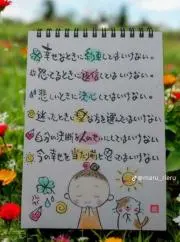 幸せなときに約束してはいけない。
怒てるときに返信してはいけない。
悲しいときに決心してはいけない。
迷ったときに楽な方を選んではいけない。
自分の決断を人のせいにしてはいけない。
今の幸せを当たり前と思てはいけない。
@maru_rieru